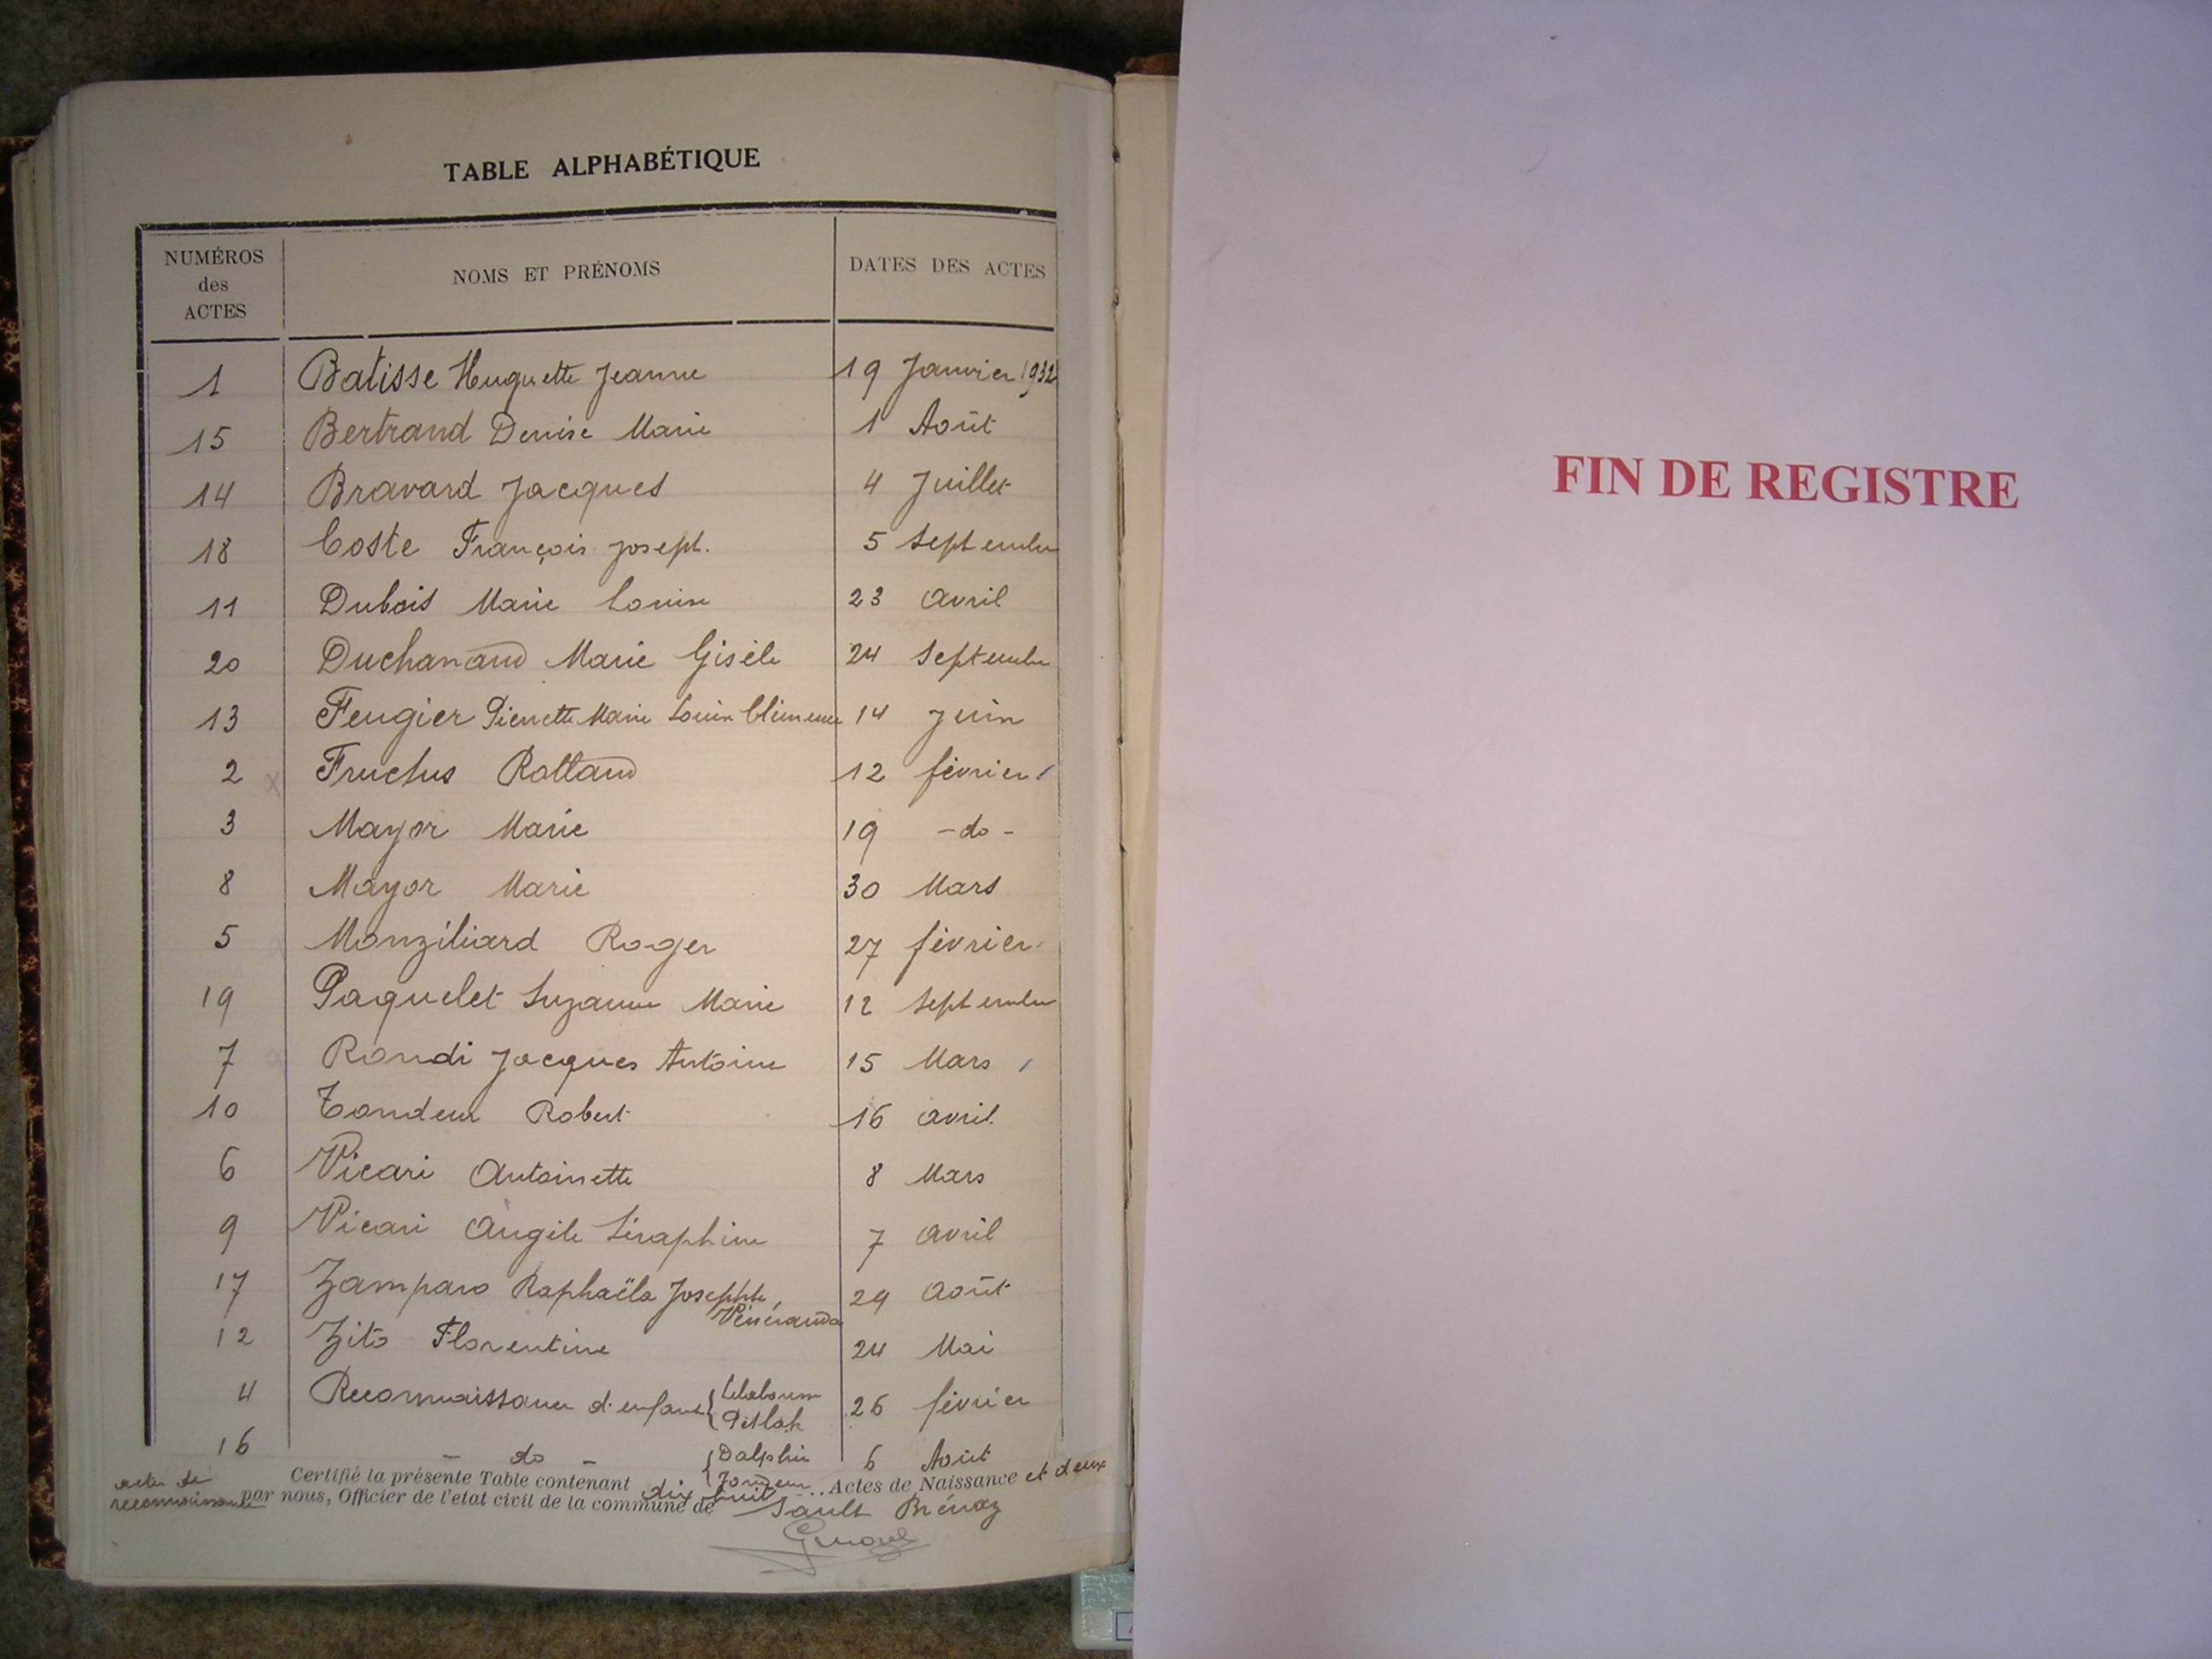 TABLE ALPHABÉTIQUE
NUMÉROS des ACTES NOMS ET PRÉNOMS DATES DES ACTES
1 Batisse Huguette Jeanne 19 Janvier 1932
15 Bertrand Denise Marie 1 Août
14 Bravard Jacques 4 Juillet
18 Coste François Joseph. 5 Septembre
11 Dubois Marie Louise 23 avril
20 Duchanaud Marie Gisèle 24 Septembre
13 Feugier Pierrette Marie Louise Clémence 14 Juin
2 Fructus Rolland 12 février
3 Mayor Marie 19 -do-
8 Mayor Marie 30 Mars
5 Monziliard Roger 27 février
19 Paquelet Suzanne Marie 12 Septembre
7 Rondi Jacques Antoine 15 Mars
10 Tondeur Robert 16 avril
6 Vicari Antoinette 8 Mars
9 Vicari Angèle Séraphine 7 avril
17 Zamparo Raphaëla Josephte, 29 Août
Vénéranda
12 Zito Florentine 24 Mai
4 Reconnaissance d'enfant 26 février
16 - do - Dalphin 6 Août
Tondeur
Certifié la présente Table contenant dix huit Actes de Naissance et deux
actes de reconnaissance par nous, Officier de l'etat civil de la commune de Sault Brénaz
FIN DE REGISTRE